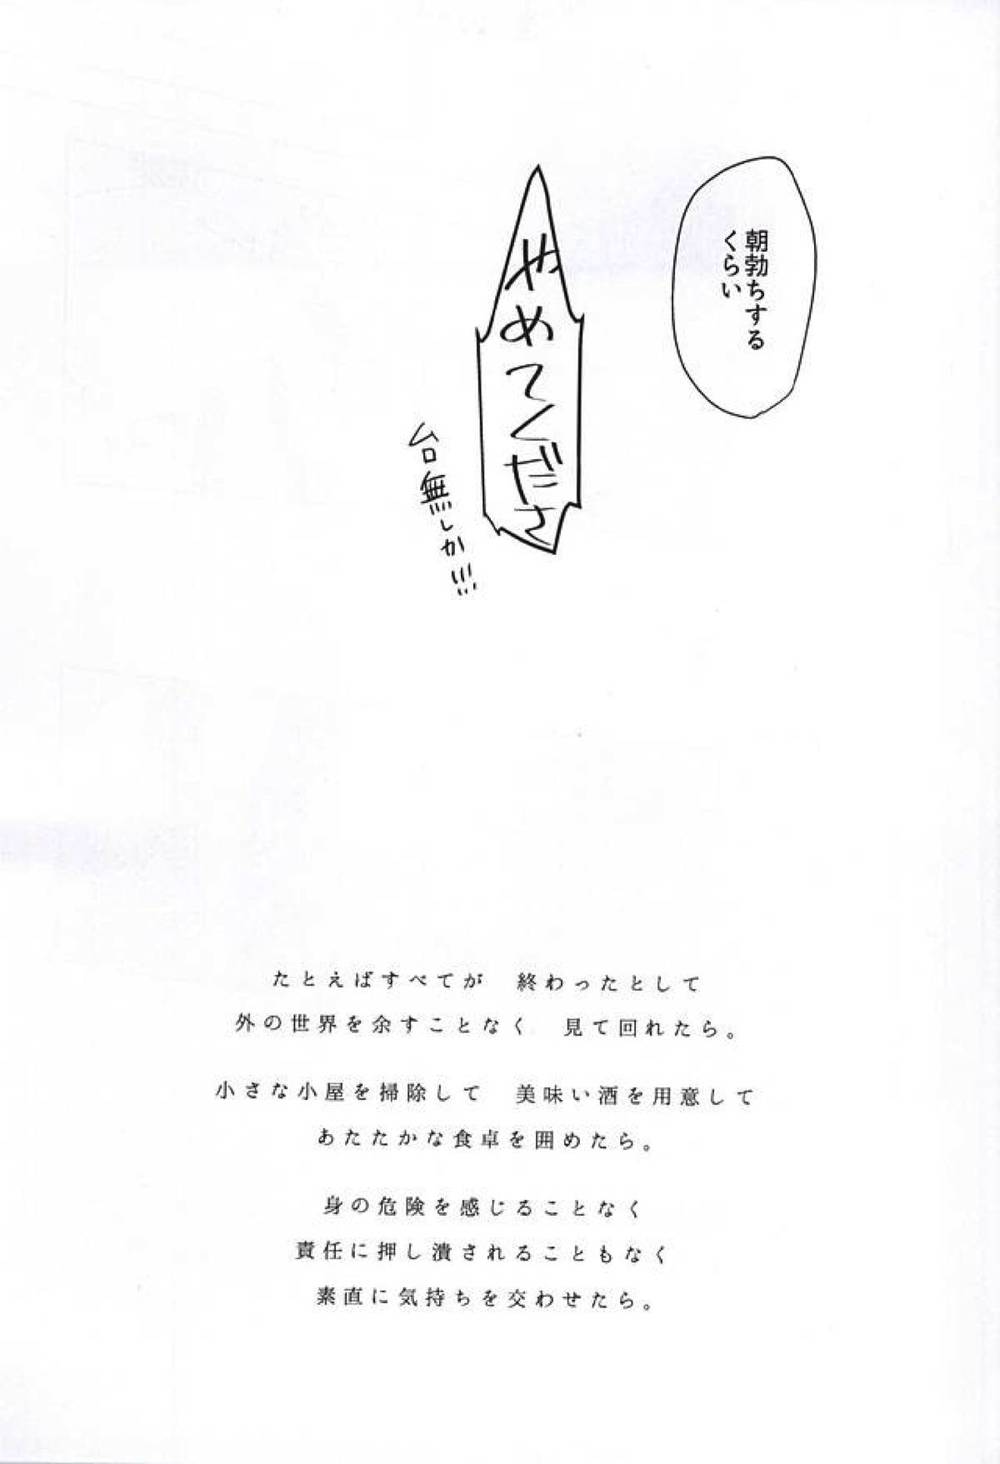 朝勃ちする
くらい
やめてくださ
台無しか!!!
たとえばすべてが　終わったとして
外の世界を余すことなく　見て回れたら。
小さな小屋を掃除して　美味い酒を用意して
あたたかな食卓を囲めたら。
身の危険を感じることなく
責任に押し潰されることもなく
素直に気持ちを交わせたら。